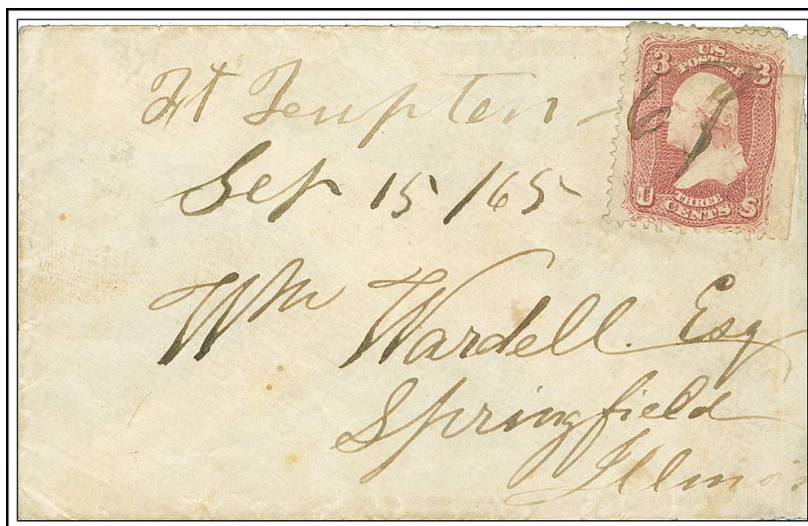 Ft Lupton
Sep 15/65
3 U.S. POSTAGE 3
U THREE CENTS S
Wm Wardell. Esq
Springfield
Illinois